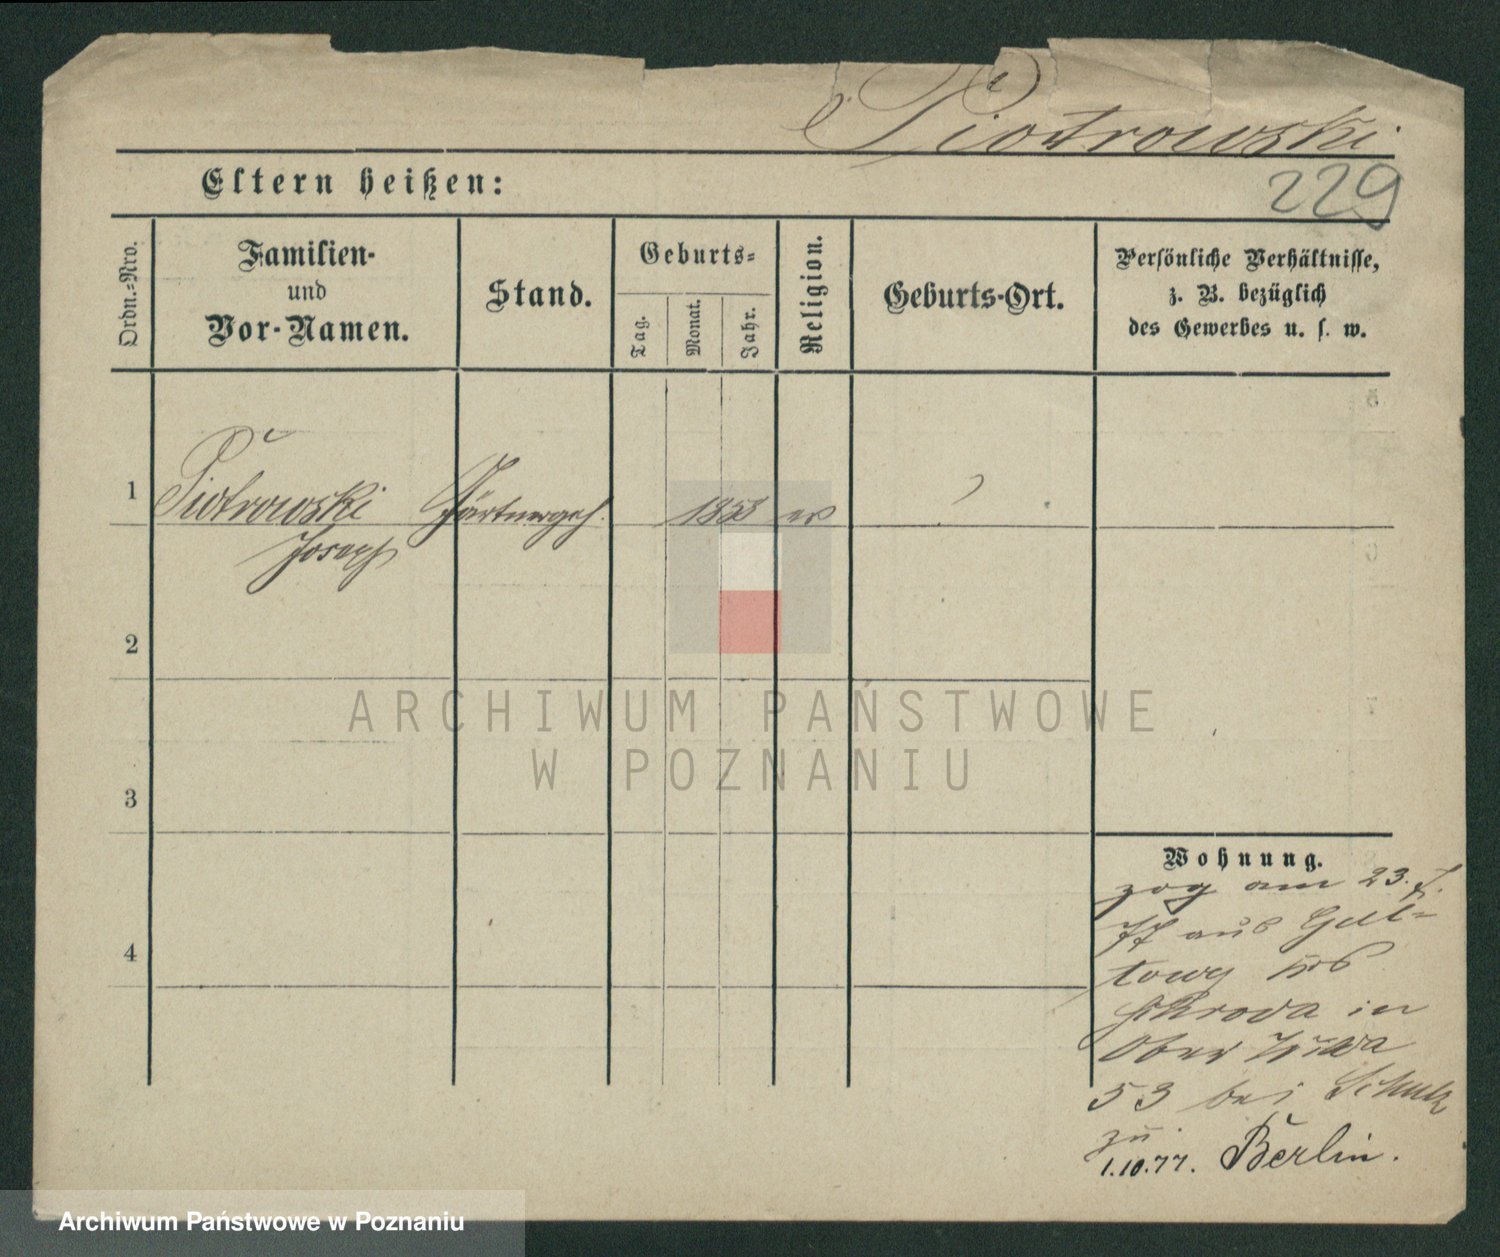 Piotrowski
229
Eltern heißen:
Ordn.-Nro.
Familien-
und
Vor-Namen.
Stand.
Geburts-
Tag.
Monat.
Jahr.
Religion.
Geburts-Ort.
Persönliche Verhältnisse,
z. B. bezüglich
des Gewerbes u. s. w.
1
Piotrowski
Joseph
Gärtnergeh.
1853
?
2
3
4
Wohnung.
zog am 23. 7.
77 aus Gul-
towy
Schroda in
Ober Wilda
53 bei Schulz
zu.
1.10.77. Berlin.
ARCHIWUM PAŃSTWOWE
W POZNANIU
Archiwum Państwowe w Poznaniu